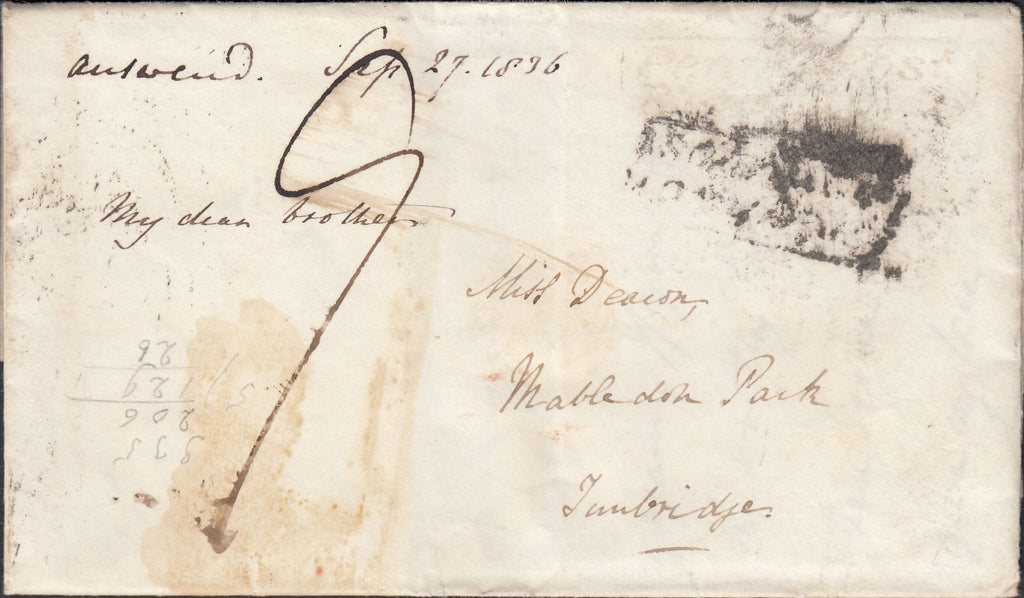 answerd. Sep 27. 1836
9
My dear brother
Miss Deacon,
Mabledon Park
Tunbridge.
335
206
129
5
26